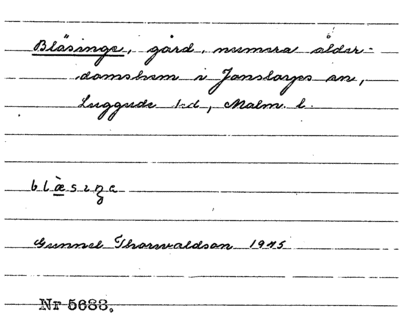 Bläsinge, gård, numera ålder-
domshem i Jonstorps sn,
Luggude hd, Malm. l.
blæ̀sıŋe
Gunnel Thorwaldson 1945
Nr 5633.